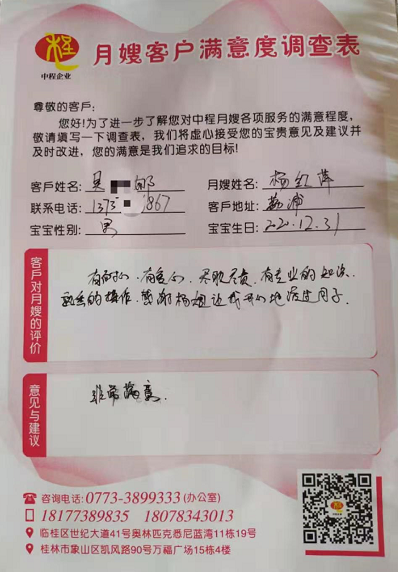 中程企业
月嫂客户满意度调查表
尊敬的客户:
您好!为了进一步了解您对中程月嫂各项服务的满意程度,
敬请填写一下调查表,我们将虚心接受您的宝贵意见及建议并
及时改进,您的满意是我们追求的目标!
客户姓名: 月嫂姓名:杨红萍
联系电话:1373 867 客户地址:荔浦
宝宝性别:男 宝宝生日:2020.12.31
客户对月嫂的评价
有耐心、有爱心、尽职尽责、有专业的知识、
熟练的操作。感谢杨姐让我开心地度过月子。
意见与建议
非常满意。
咨询电话:0773-3899333(办公室)
18177389835 18078343013
临桂区世纪大道41号奥林匹克悉尼蓝湾11栋19号
桂林市象山区凯风路90号万福广场15栋4楼